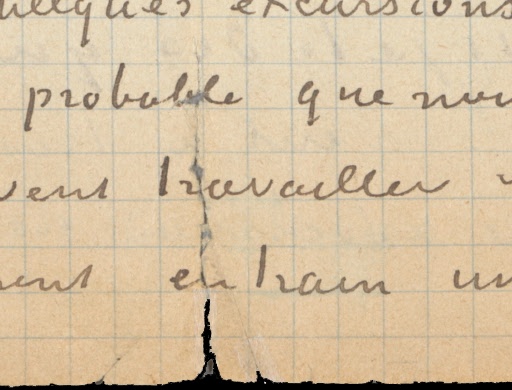 quelques excursions
probable que nou
vent travailler
ent en train un